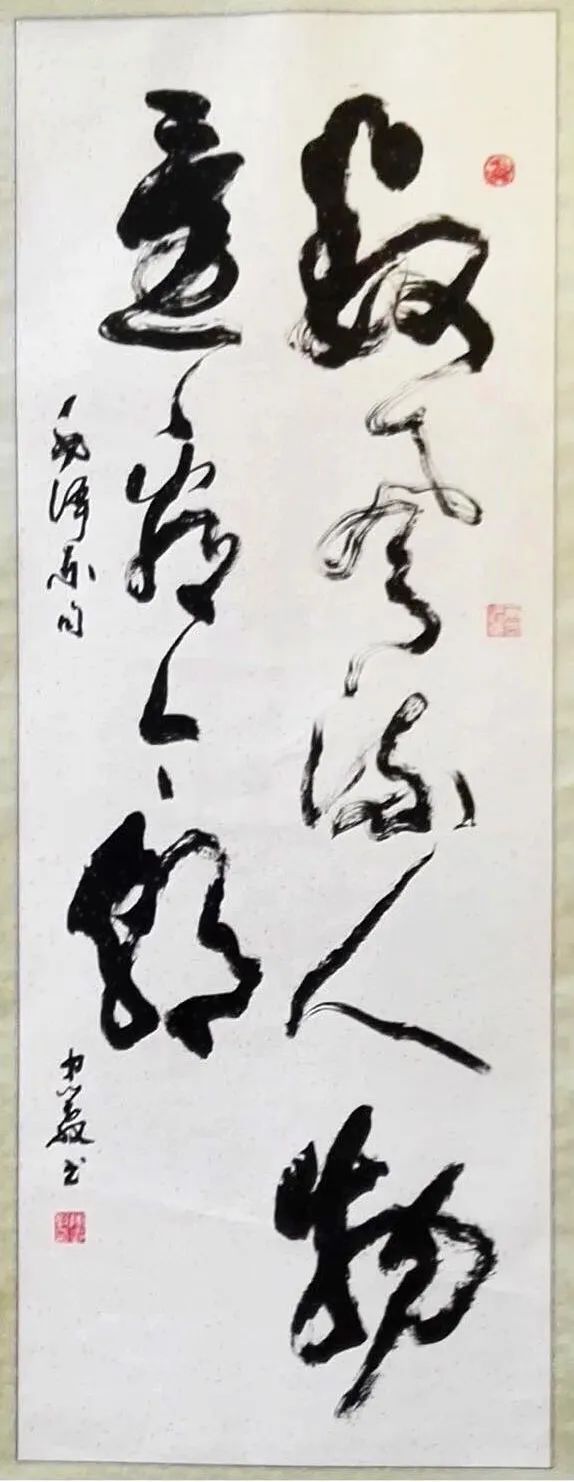 数风流人物
还看今朝
毛泽东句
书